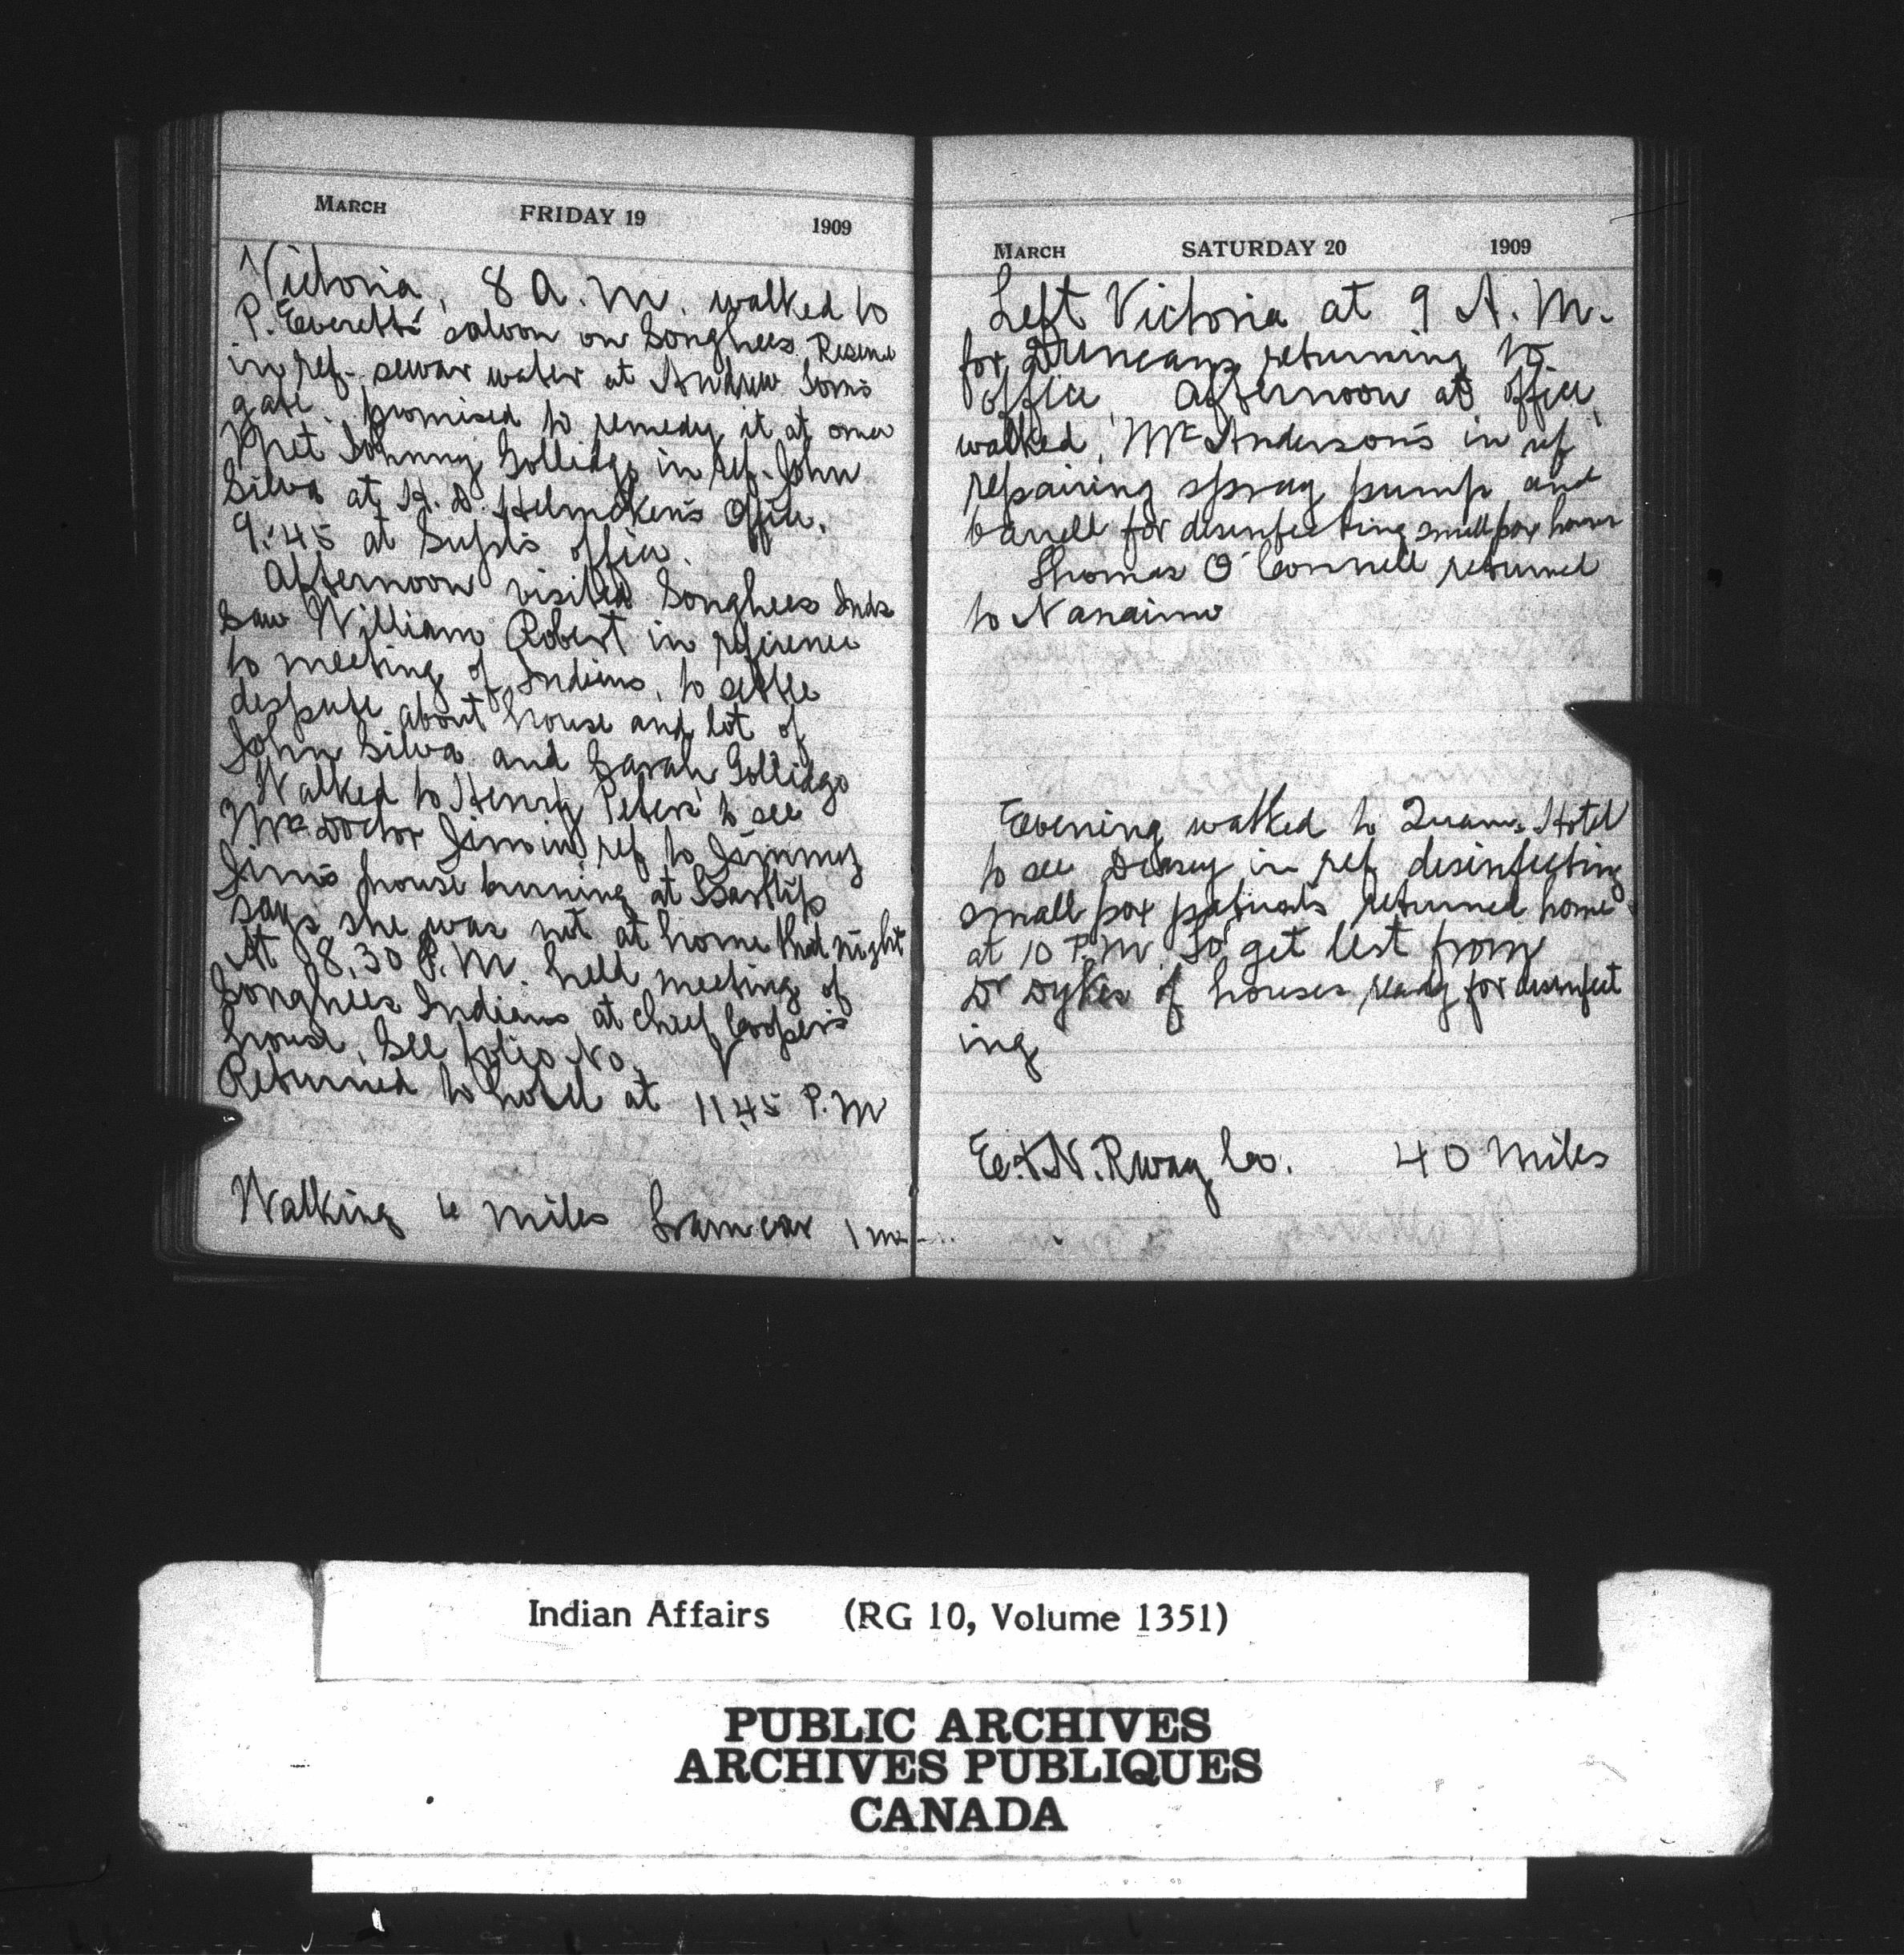 March FRIDAY 19 1909
Victoria, 8 A.M. walked to
P. Everetts' saloon on Songhees Reserve
in ref. sewar water at Andrew Toms
gate. promised to remedy it at once
Met Johnny Gollidge in ref. John
Silva at H. D. Helmcken's Office.
9.45 at Supts office.
Afternoon visited Songhees Inds
Saw William Robert in referrence
to meeting of Indians, to settle
despute about house and lot of
John Silva and Sarah Gollidge
Walked to Henry Peters' to see
Mrs Doctor Jim in ref to Jimmy
Jim's house burning at
says she was not at home that night
At 8.30 P.M. held meeting of
Songhees Indians at chief Cooper's
house. See folio No.
Returned to hotel at 11.45 P.M
Walking miles Tramcar 1 m
March SATURDAY 20 1909
Left Victoria at 9 A.M.
for Duncans returning to
office. Afternoon at office,
walked, Mc Anderson's in ref
repairing spray pump and
barrell for disinfecting smallpox houses
Thomas O'Connell returned
to Nanaimo
Evening walked to Hotel
to see in ref disinfecting
small pox patients returned home
at 10 P.M. To get list from
Dr Dykes of houses ready for disinfect
ing
E.&N. Rway Co. 40 Miles
Indian Affairs (RG 10, Volume 1351)
PUBLIC ARCHIVES
ARCHIVES PUBLIQUES
CANADA